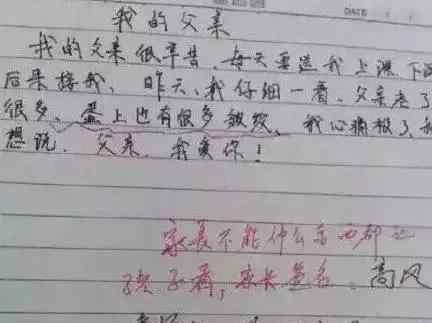 DATE
我的父亲
我的父亲很辛苦 每天要送我上课.下
后来接我. 昨天.我仔细一看.父亲老了
很多. 蛋上也有很多皱纹. 我心痛极了.
想说. 父亲. 我爱你!
家长不能什么东西都让
孩子看,家长签名:高风